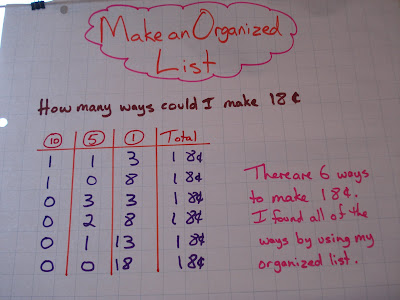 Make an Organized
List
How many ways could I make 18¢
10 5 1 Total
1 1 3 18¢
1 0 8 18¢
0 3 3 18¢
0 2 8 18¢
0 1 13 18¢
0 0 18 18¢
There are 6 ways
to make 18¢.
I found all of the
ways by using my
organized list.